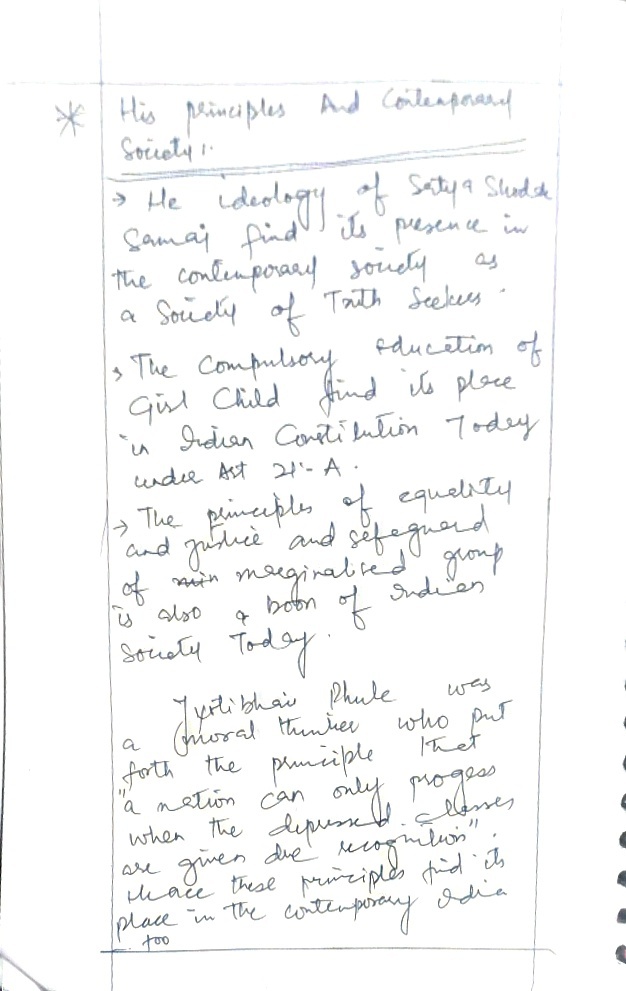 * His principles And Contemporary
Society :-
→ He ideology of Satya Shodak
Samaj find its presence in
the contemporary society as
a Society of Truth Seekers.
→ The Compulsory education of
Girl Child find its place
in Indian Constitution Today
under Art 21-A.
→ The principles of equality
and justice and safeguard
of marginalised group
is also a boon of Indian
Society Today.
Jyotibhai Phule was
a moral thinker who put
forth the principle that
"a nation can only progess
when the depressed classes
are given due recognition".
these principles find its
place in the contemporary India
too